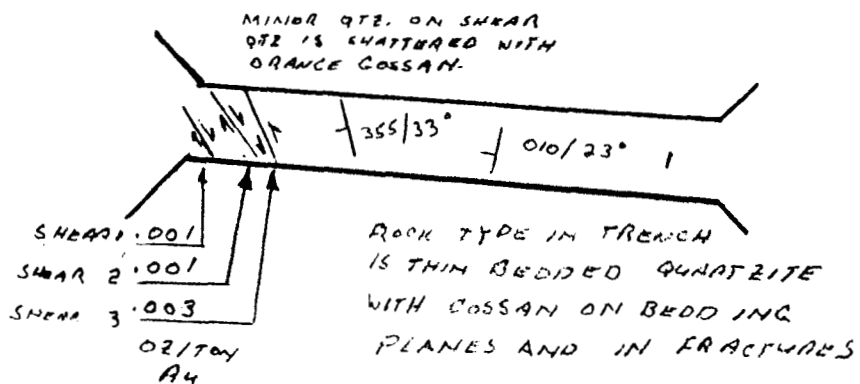 MINOR QTZ. ON SHEAR
QTZ IS SHATTERED WITH
ORANGE GOSSAN.
355/33°
010/23°
SHEAR 1 .001
SHEAR 2 .001
SHEAR 3 .003
OZ/TON
Au
ROCK TYPE IN TRENCH
IS THIN BEDDED QUARTZITE
WITH GOSSAN ON BEDDING
PLANES AND IN FRACTURES